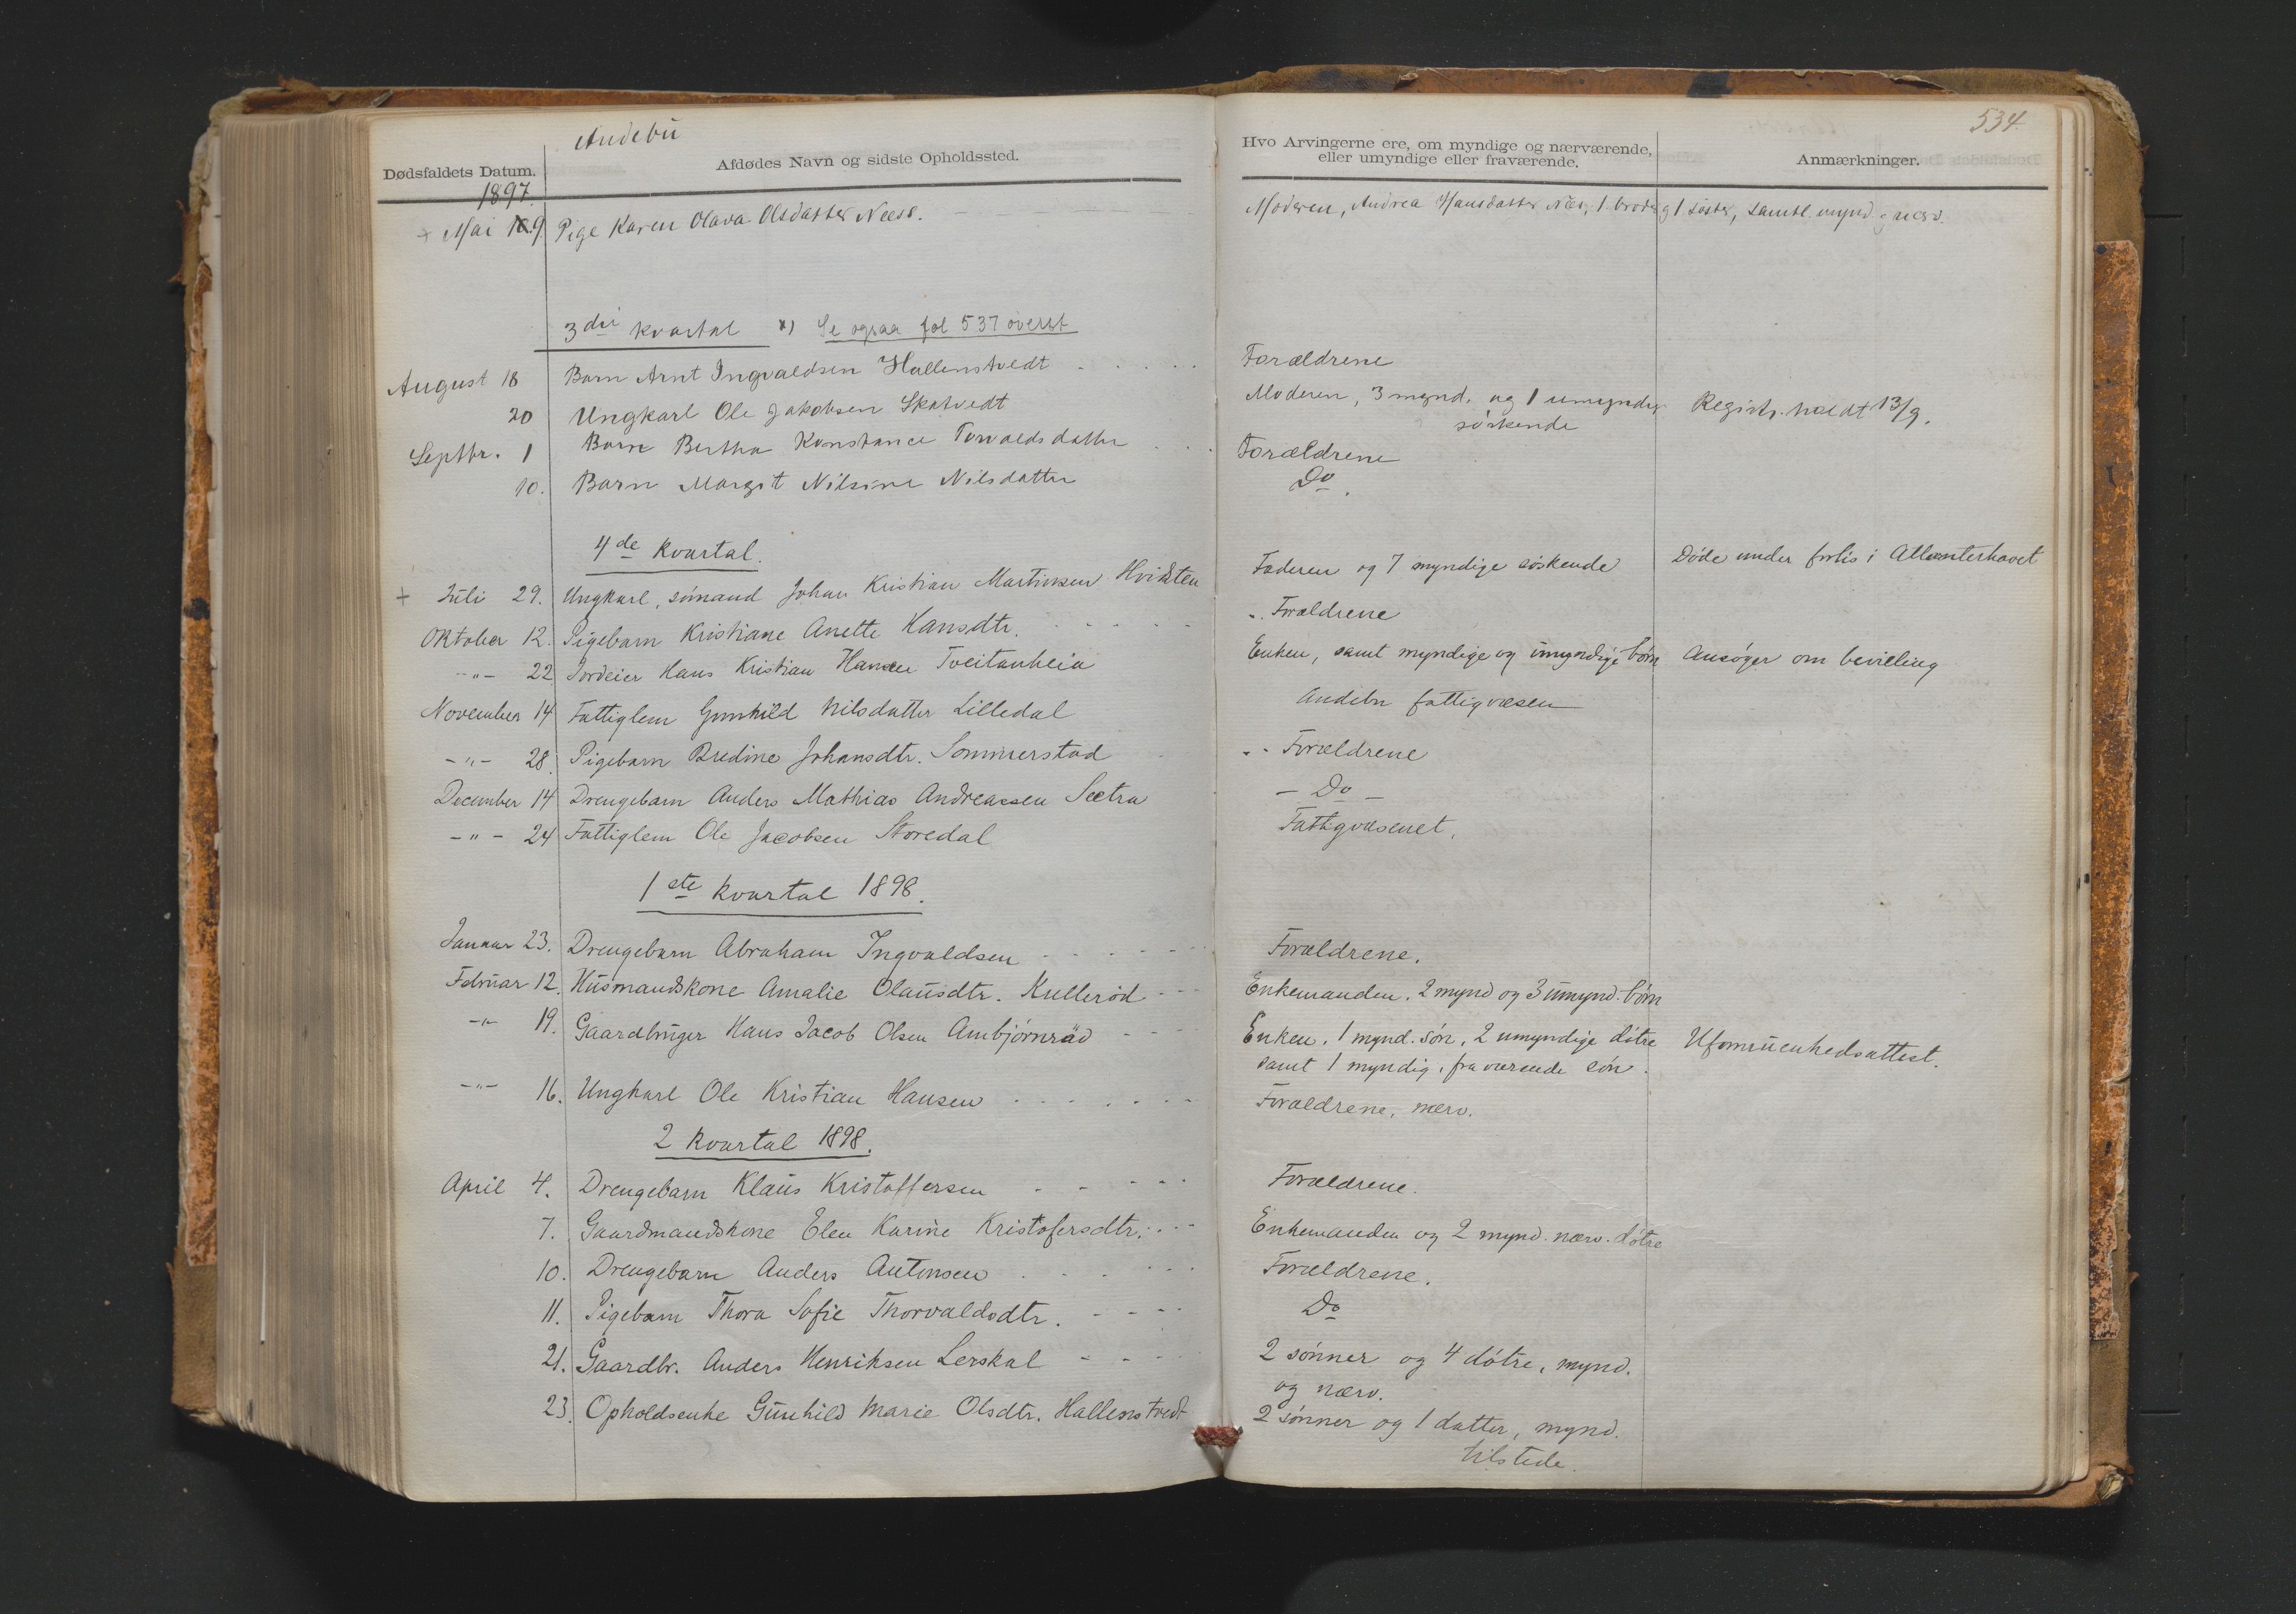 Andebu
534
Dødsfaldets Datum. Afdødes Navn og sidste Opholdssted. Hvo Arvingerne ere, om myndige og nærværende, eller umyndige eller fraværende. Anmærkninger.
1897.
+ Mai 9 Pige Karen Olava Olsdatter Neess. Moderen, Andrea Hansdatter Næs, 1 broder og 1 søster, samtl. mynd. og nærv.
3die kvartal x) Se ogsaa fol 537 øverst
August 18 Barn Arnt Ingvaldsen Hallenstvedt Forældrene
20 Ungkarl Ole Jakobsen Skatvedt Moderen, 3 mynd. og 1 umyndig Registr. holdt 13/9.
søskende
Septbr. 1 Barn Bertha Konstance Torvaldsdatter Forældrene
10. Barn Margit Nilsine Nilsdatter Do.
4de kvartal.
+ Juli 29. Ungkarl, sømand Johan Kristian Martinsen Hvidsten Faderen og 7 myndige søskende Døde under forlis i Atlanterhavet
Oktober 12. Pigebarn Kristiane Anette Hansdtr. Forældrene
-"- 22 Jordeier Hans Kristian Hansen Tveitanheia Enken, samt myndige og umyndige børn Ansøger om bevilling
November 14 Fattiglem Gunhild Nilsdatter Lilledal Andebu fattigvæsen
-"- 28. Pigebarn Bredine Johansdtr. Sommerstad Forældrene
December 14 Drengebarn Anders Mathias Andreassen Sætra - Do -
-"- 24 Fattiglem Ole Jacobsen Storedal Fattigvæsenet.
1ste kvartal 1898.
Januar 23. Drengebarn Abraham Ingvaldsen Forældrene.
Februar 12. Husmandskone Amalie Olausdtr. Kullerød Enkemanden. 2 mynd og 3 umynd. børn
-"- 19. Gaardbruger Hans Jacob Olsen Ambjørnrød Enken. 1 mynd. søn, 2 umyndige døtre Uformuenhedsattest.
samt 1 myndig, fraværende søn.
-"- 16. Ungkarl Ole Kristian Hansen Forældrene, nærv.
2 kvartal 1898.
April 4. Drengebarn Klaus Kristoffersen Forældrene.
7. Gaardmandskone Elen Karine Kristofersdtr. Enkemanden og 2 mynd. nærv. døtre
10. Drengebarn Anders Antonsen Forældrene.
11. Pigebarn Thora Sofie Thorvaldsdtr. Do
21. Gaardbr. Anders Henriksen Lerskal 2 sønner og 4 døtre, mynd.
og nærv.
23. Opholdsenke Gunhild Marie Olsdtr. Hallenstvedt 2 sønner og 1 datter, mynd.
tilstede.